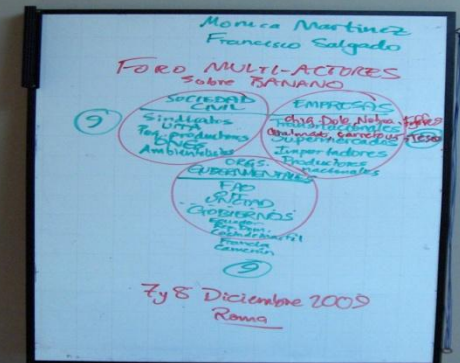 Monica Martinez
Francisco Salgado
FORO MULTI-ACTORES
Sobre BANANO
SOCIEDAD CIVIL
9
Sindicatos
UITA
Peq. productores
ONGs
Ambientales
EMPRESAS
Chiq. Dole, Noboa
Transnacionales
Carrefour
Supermercados
Tesco
Importadores
Productores nacionales
ORGS.
GUBERNMENTALES
FAO
OIT
UNCTAD
GOBIERNOS
Ecuador
Rep. Dom.
Costa de Marfil
Francia
Camerún
9
7 y 8 Diciembre 2009
Roma